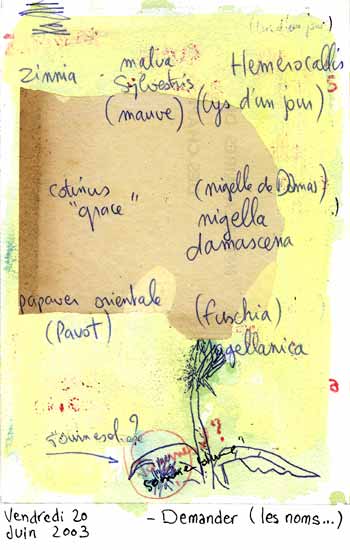 (lys d'un jour)
zinnia
malva
sylvestris
(mauve)
Hemerocallis
(lys d'un jour)
cotinus
"grace"
(nigelle de Damas)
nigella
damascena
papaver orientale
(Pavot)
(fuschia)
magellanica
?
Vendredi 20
Juin 2003
- Demander (les noms...)